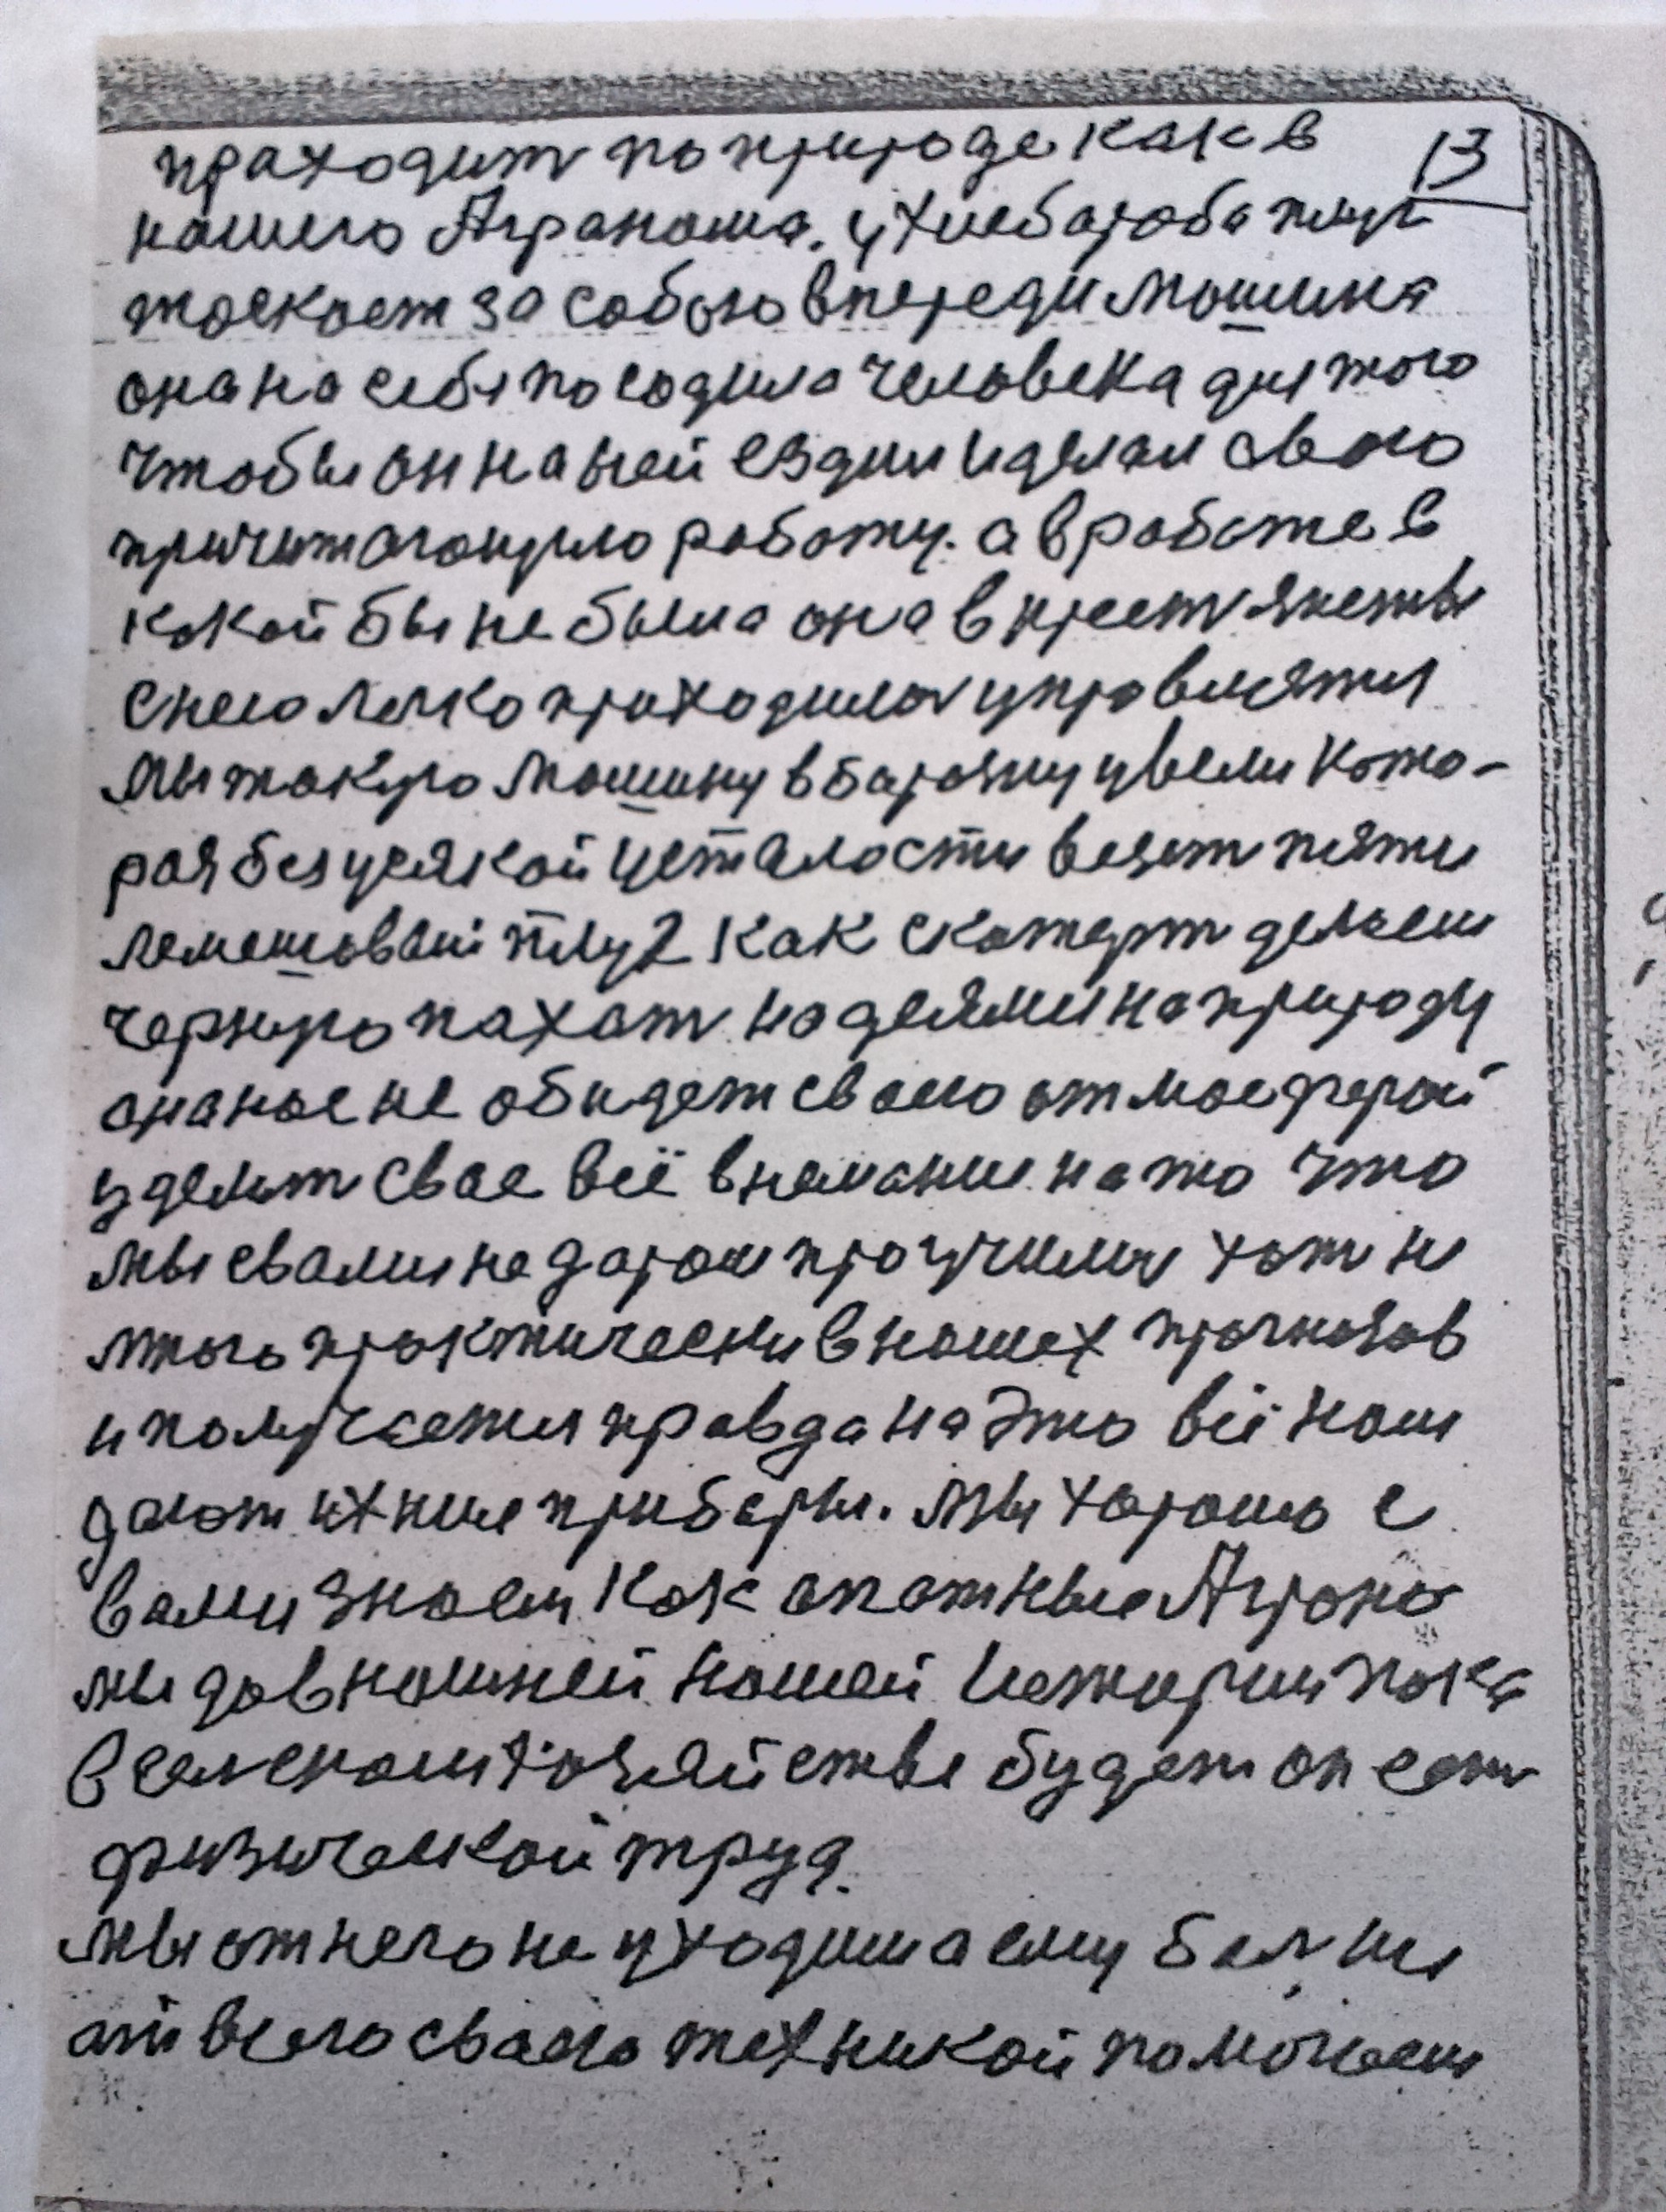 праходит по природе как в 13
нашего Агранома. ухлеба тоба плуг
таскает за собою впереди машина
она на себя посодила человека для того
чтобы он на ней ездил и делал свою
причитающую работу. а в работе в
какой бы не была она в крестьянстве
с нею легко приходилось управляться
мы такую машину в борозну увели кото-
рая без усякой усталости везет пяти
лемешовый плуг как скатерть делаем
чернную пахоть надеямый на природу
она нас не обидет своею атмасферай
уделит свае всё внемание на то что
мы свами не даром проучились хоть не
много практически в нашех прогнозав
и получается правда на это всё нам
дают ихние приборы. мы хорошо с
вами знаем как опатные Аграно
мы давношней нашей Истории пака
в сельском хозяйстве будет он есть
физической труд.
мы от него не уходим а ему больше
от всего своею техникой помогаем